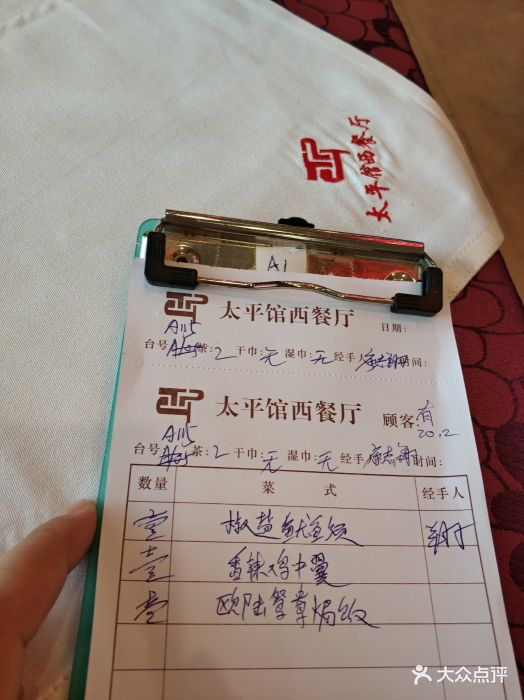 太平馆西餐厅
A1
太平馆西餐厅 日期:
A115
台号 茶: 2 干巾: 无 湿巾: 无 经手人 时间:
太平馆西餐厅 顾客: 有
20.2
A115
台号 茶: 2 干巾: 无 湿巾: 无 经手 时间:
数量 菜式 经手人
壹 椒盐鱿鱼须
壹 香辣鸡中翼
壹 欧陆 焗
大众点评